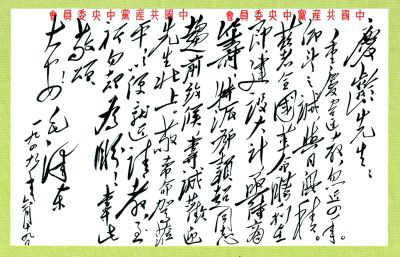 中國共產黨中央委員會
中國共產黨中央委員會
慶齡先生:
重慶違教,忽近四年。
仰望之誠,與日俱積。
茲者全國革命勝利在
即,建設大計,亟待商
籌,特派鄧穎超同志
趨前致候,專誠歡迎
先生北上。敬希命駕蒞
平,以便就近請教,至
祈勿卻為盼!專此
敬頌
大安! 毛澤東
一九四九年六月十九日